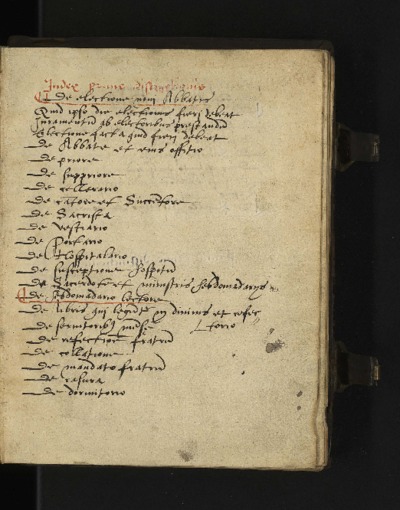 Index prime distinctionis
de electione novi Abbatis
Quid ipso die electionis fieri debeat
Juramentum ab electoribus prestandum
Electione facta quid fieri debeat
de Abbate et eius officio
de priore
de suppriore
de cellerario
de cantore et Succentore
de Sacrista
de vestiario
de Portario
de Hospitalario
de susceptione hospitum
de Sacerdote et ministris hebdomadariis
de hebdomadario lectore
de libris qui leguntur in divinis et refec
torio
de servitoribus mense
de refectione fratrum
de collatione
de mandato fratrum
de rasura
de dormitorio